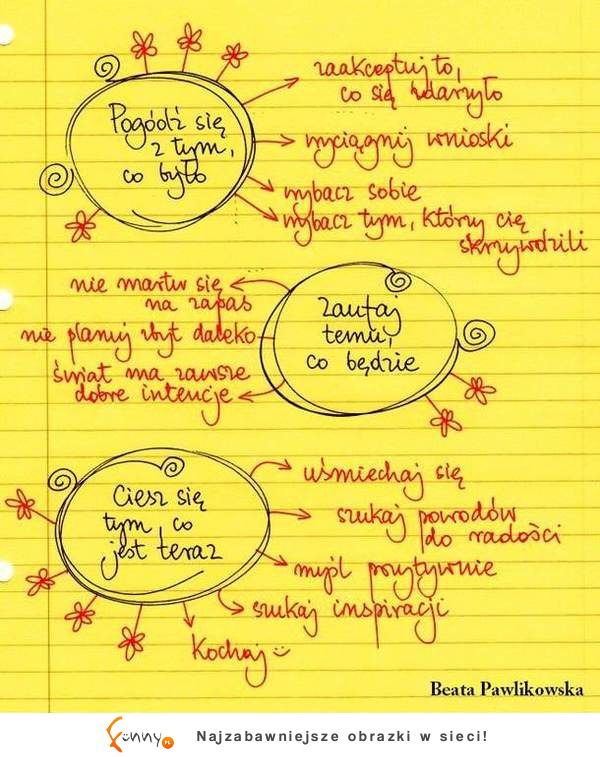 Pogódź się
z tym,
co było
zaakceptuj to,
co się zdarzyło
wyciągnij wnioski
wybacz sobie
wybacz tym, którzy cię
skrzywdzili
Zaufaj
temu,
co będzie
nie martw się
na zapas
nie planuj zbyt daleko
świat ma zawsze
dobre intencje
Ciesz się
tym, co
jest teraz
uśmiechaj się
szukaj powodów
do radości
myśl pozytywnie
szukaj inspiracji
Kochaj
Beata Pawlikowska
funny.PL
Najzabawniejsze obrazki w sieci!